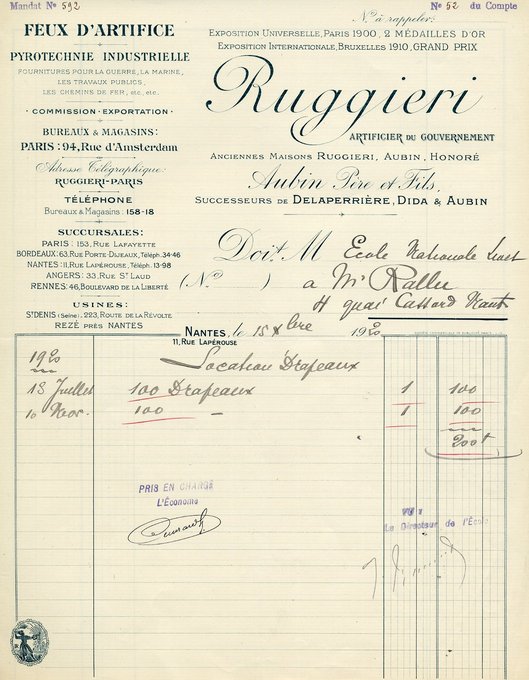 Mandat No 592
No 52 du Compte
No à rappeler:
FEUX D'ARTIFICE
PYROTECHNIE INDUSTRIELLE
FOURNITURES POUR LA GUERRE, LA MARINE,
LES TRAVAUX PUBLICS,
LES CHEMINS DE FER, etc., etc.
COMMISSION - EXPORTATION
BUREAUX & MAGASINS:
PARIS: 94, Rue d'Amsterdam
Adresse Télégraphique:
RUGGIERI-PARIS
TÉLÉPHONE
Bureaux & Magasins: 158-18
SUCCURSALES:
PARIS: 153, RUE LAFAYETTE
BORDEAUX: 63, RUE PORTE-DIJEAUX, Téléph. 34-46
NANTES: 11, RUE LAPÉROUSE, Téléph. 13-98
ANGERS: 33, RUE St LAUD
RENNES: 46, BOULEVARD DE LA LIBERTÉ
USINES:
St DENIS (Seine), 223, ROUTE DE LA RÉVOLTE
REZÉ PRÈS NANTES
EXPOSITION UNIVERSELLE, PARIS 1900, 2 MÉDAILLES D'OR
EXPOSITION INTERNATIONALE, BRUXELLES 1910, GRAND PRIX
Ruggieri
ARTIFICIER DU GOUVERNEMENT
ANCIENNES MAISONS RUGGIERI, AUBIN, HONORÉ
Aubin Père et Fils,
SUCCESSEURS DE DELAPERRIÈRE, DIDA & AUBIN
Doit M Ecole Nationale
(No )
a Mr Rallu
4 quai Cassard
NANTES, le 15 Xbre 1920
11, RUE LAPÉROUSE
1920
Location Drapeaux
13 Juillet 100 Drapeaux 1 100
10 Nov. 100 — 1 100
200f
PRIS EN CHARGE
L'Économe
VU:
Le Directeur de l'École